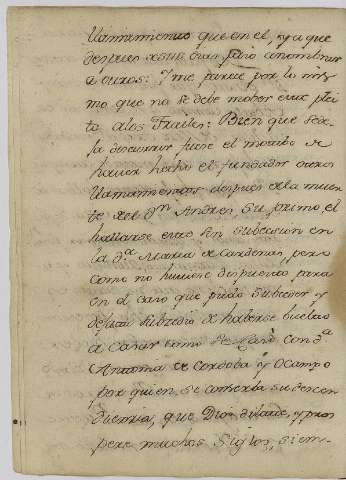 llamamiento que en el, y a que
despues de sus dias
a otros: y me parece por lo mis-
mo que no se debe mober este plei
to a los Frailes: Bien que
discurrir fuese el motibo de
haver hecho el fundador otros
llamamientos despues de la muer
te del Dn Andres, su primo el
hallarse este sin subcesion en
la Da Maria de Cardenas, pero
como no huviese dispuesto para
en el caso que pudo subceder y
de haberse buelto
a casar como se casó con Da
Antonia de Cordoba y Ocampo
por quien se conserba su descen
dencia, que Dios dilate, y pros
pere muchos Siglos, siem-